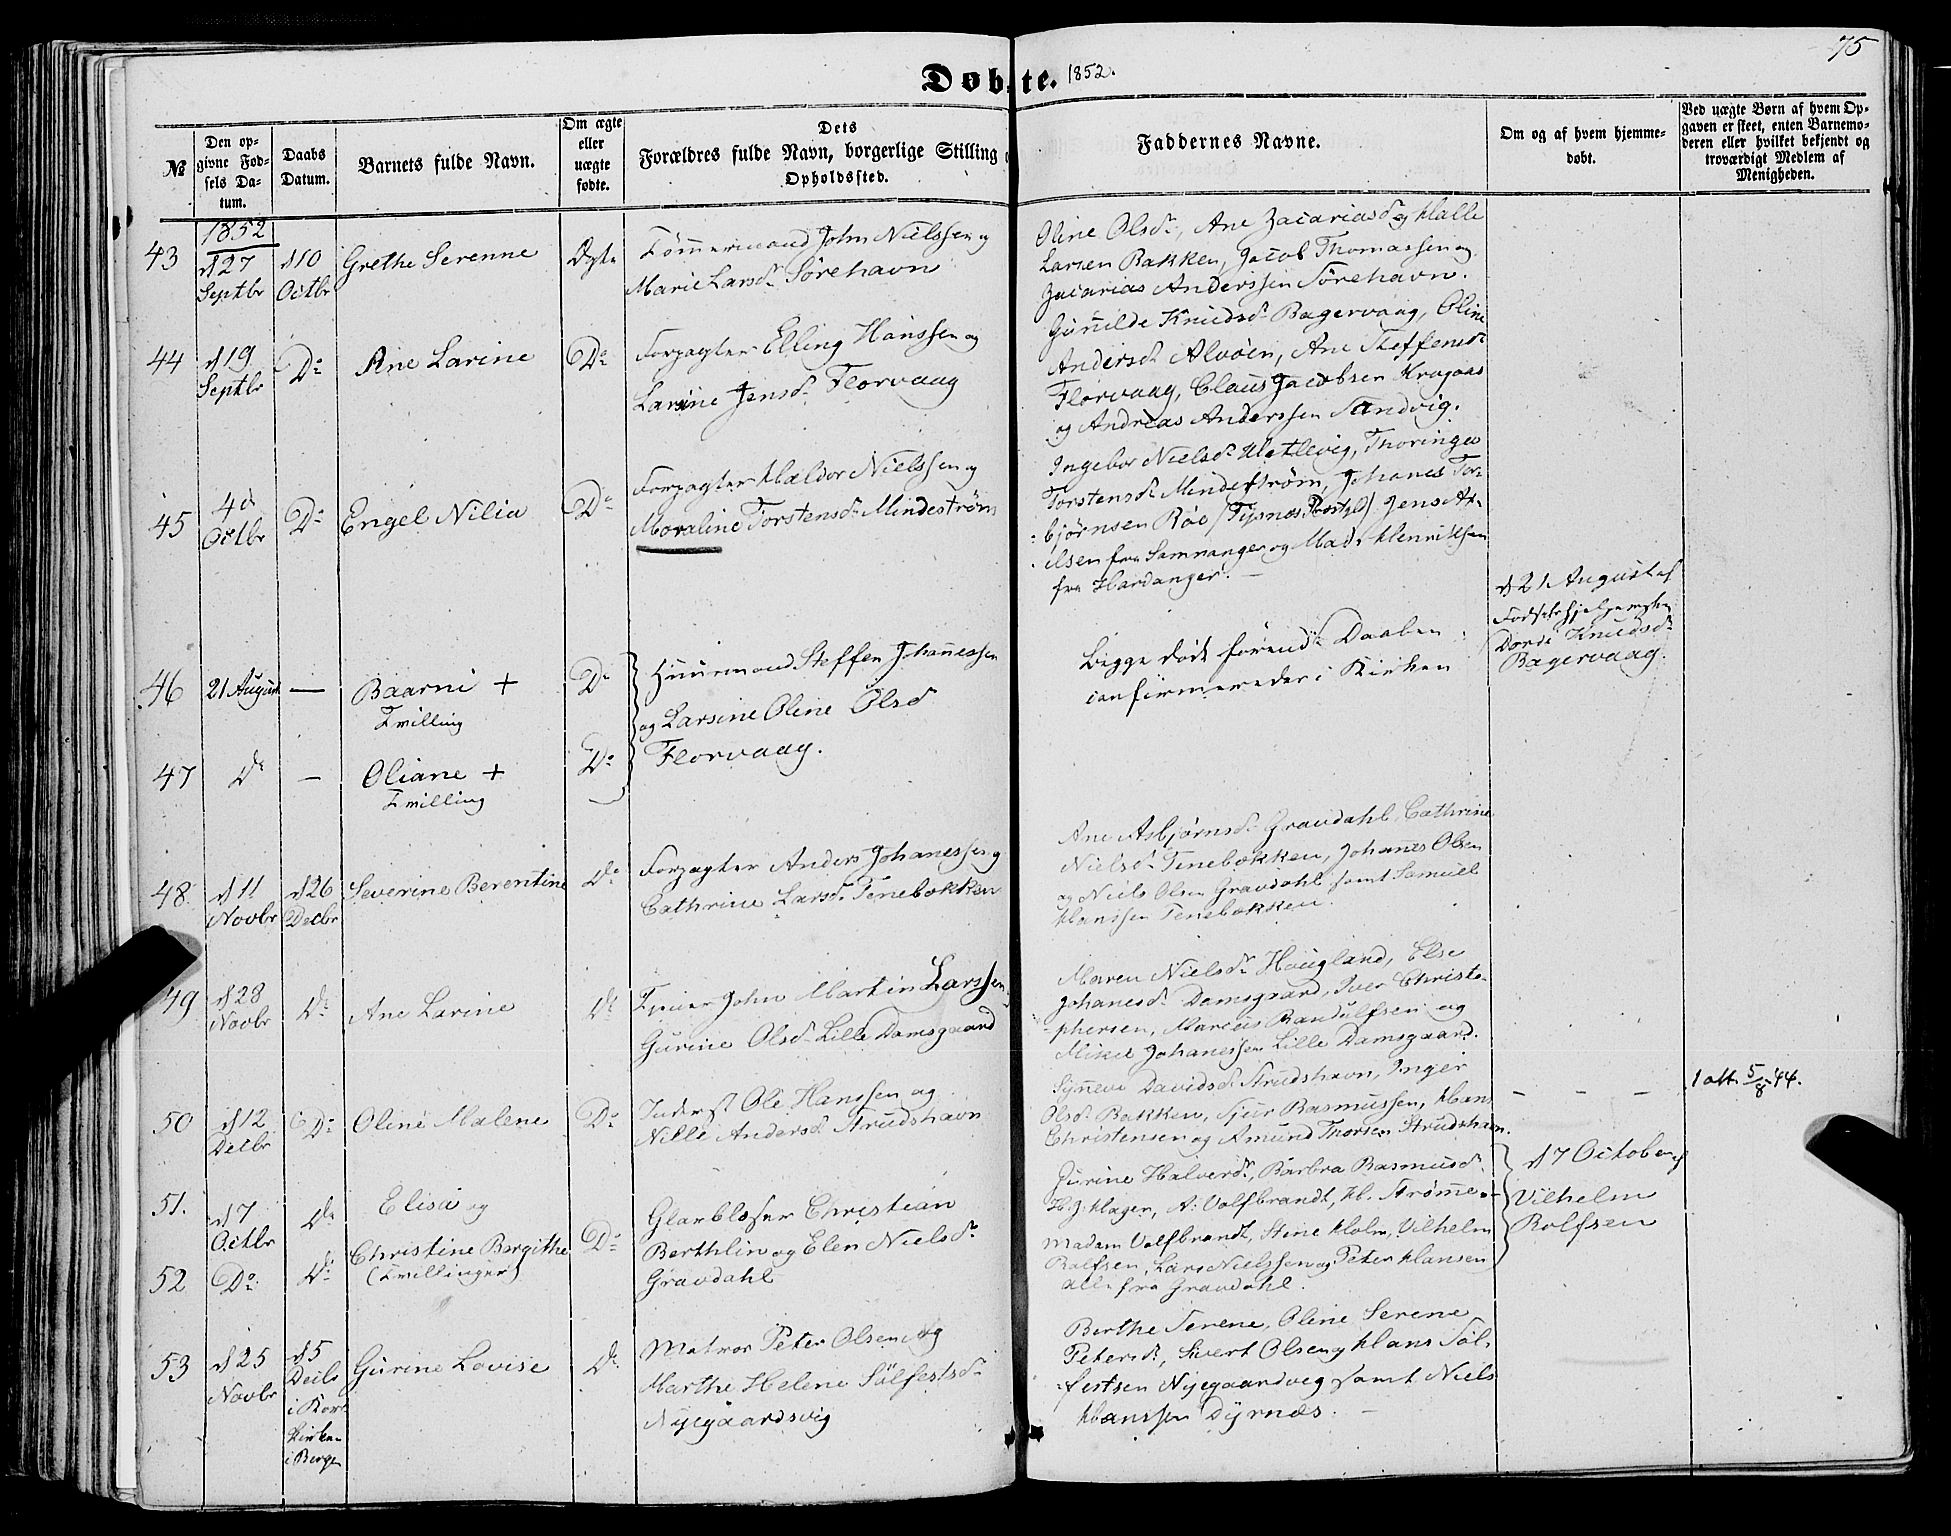 75
Døbte. 1852.
№
Den op-
givne Fød-
sels Da-
tum.
Daabs
Datum.
Barnets fulde Navn.
Om ægte
eller
uægte
fødte.
Dets
Forældres fulde Navn, borgerlige Stilling o
Opholdssted.
Faddernes Navne.
Om og af hvem hjemme-
døbt.
Ved uægte Børn af hvem Op-
gaven er skeet, enten Barnemo-
deren eller hvilket bekjendt og
troværdigt Medlem af
Menigheden.
1852
43
d 27
Septbr
d 10
Octbr
Grethe Serenne
Ægte
Tømmermand John Nielssen og
Marie Larsd. Sørehavn
Oline Olsd., Ane Zacariasd og Halle
Larsen Bakken, Jacob Thomassen og
Zacarias Anderssen Sørehavn.
44
d 19
Septbr
Do
Ane Larine
Do
Forpagter Elling Hanssen og
Larine Jensd. Florvaag
Gunnilde Knudsd. Bagervaag, Oline
Andersd. Alvøen, Ane Steffensd.
Florvaag, Claus Jacobsen
og Andreas Anderssen Sandvig.
45
4d
Octbr
Do
Engel Nilia
Do
Forpagter Haldor Nielssen og
Moraline Torstensd. Mindestrøm
Ingebor Nielsd. Hetlevig, Thoringa
Torstensd. Mindestrøm, Johanes Tor-
bjørnsen Røe (Tysnes Præstgd). Jens
elsen fra Samnanger og Mads Henriksen
fra Hardanger. —
46
21 August
—
Baarni +
Tvilling
Do
Huusmand Steffen Johannessen
og Larsine Oline Olsd
Florvaag.
Begge døde førend Daaben
confirmeredes i Kirken
d 21 August af
Fødselshjelpersken
Dorde Knudsd.
Bagervaag.
47
Do
—
Oliane +
Tvilling
Do
48.
d 11
Novbr
d 26
Decbr
Severine Berentine
Do
Forpagter Anders Johanessen og
Cathrine Larsd. Tenebækken
Ane Asbjørnsd. Gravdahl, Cathrine
Nielsd. Tenebækken, Johannes Olsen
og Niels Olsen Gravdahl samt Samuel
Hanssen Tenebækken.
49
d 28
Novbr
Do
Ane Larine
Do
John Martin Larssen
Gurine Olsd. Lille Damsgaard
Maren Nielsd. Hougland, Else
Johanesd. Damsgaard, Iver Christo-
phersen, Marcus Randulfsen og
Mikel Johanessen Lille Damsgaard.
50
d 12
Decbr
Do
Oline Malene
Do
Inderst Ole Hanssen og
Nille Andersd. Strudshavn
Synneve Davidsd. Strudshavn, Inger
Olsd. Bakken, Sjur Rasmussen, Hans
Christensen og Amund Thorsen Strudshavn.
— — —
1 att. 5/8-44.
51.
d 7
Octbr
Do
Elisa og
Do
Glasblæser Christian
Berthlin og Elen Nielsd.
Gravdahl
Jurine Halverd., Barbra Rasmusd.
H. J. Hagen, A: Volfbrandt, H. Strømme
Madam Volfbrandt, Stine Holm, Vilhelm
Rolfsen, Lars Nielssen og Peter Hansen
alle fra Gravdahl.
d 7 October af
Vilhelm
Rolfsen
52
Do
Do
Christine Bergithe
(Tvillinger)
53
d 25
Novbr
d 5
Decbr
i Kors
Kirken
i Bergen
Gurine Lovise
Do
Matros Peter Olsen og
Marthe Helene Sølfestsd.
Nygaardsvig
Berthe Serene, Oline Serene
Petersd., Sivert Olsen og Hans Søl-
festsen Nyegaardsvig samt Niels
Hanssen Dyrnæs. —